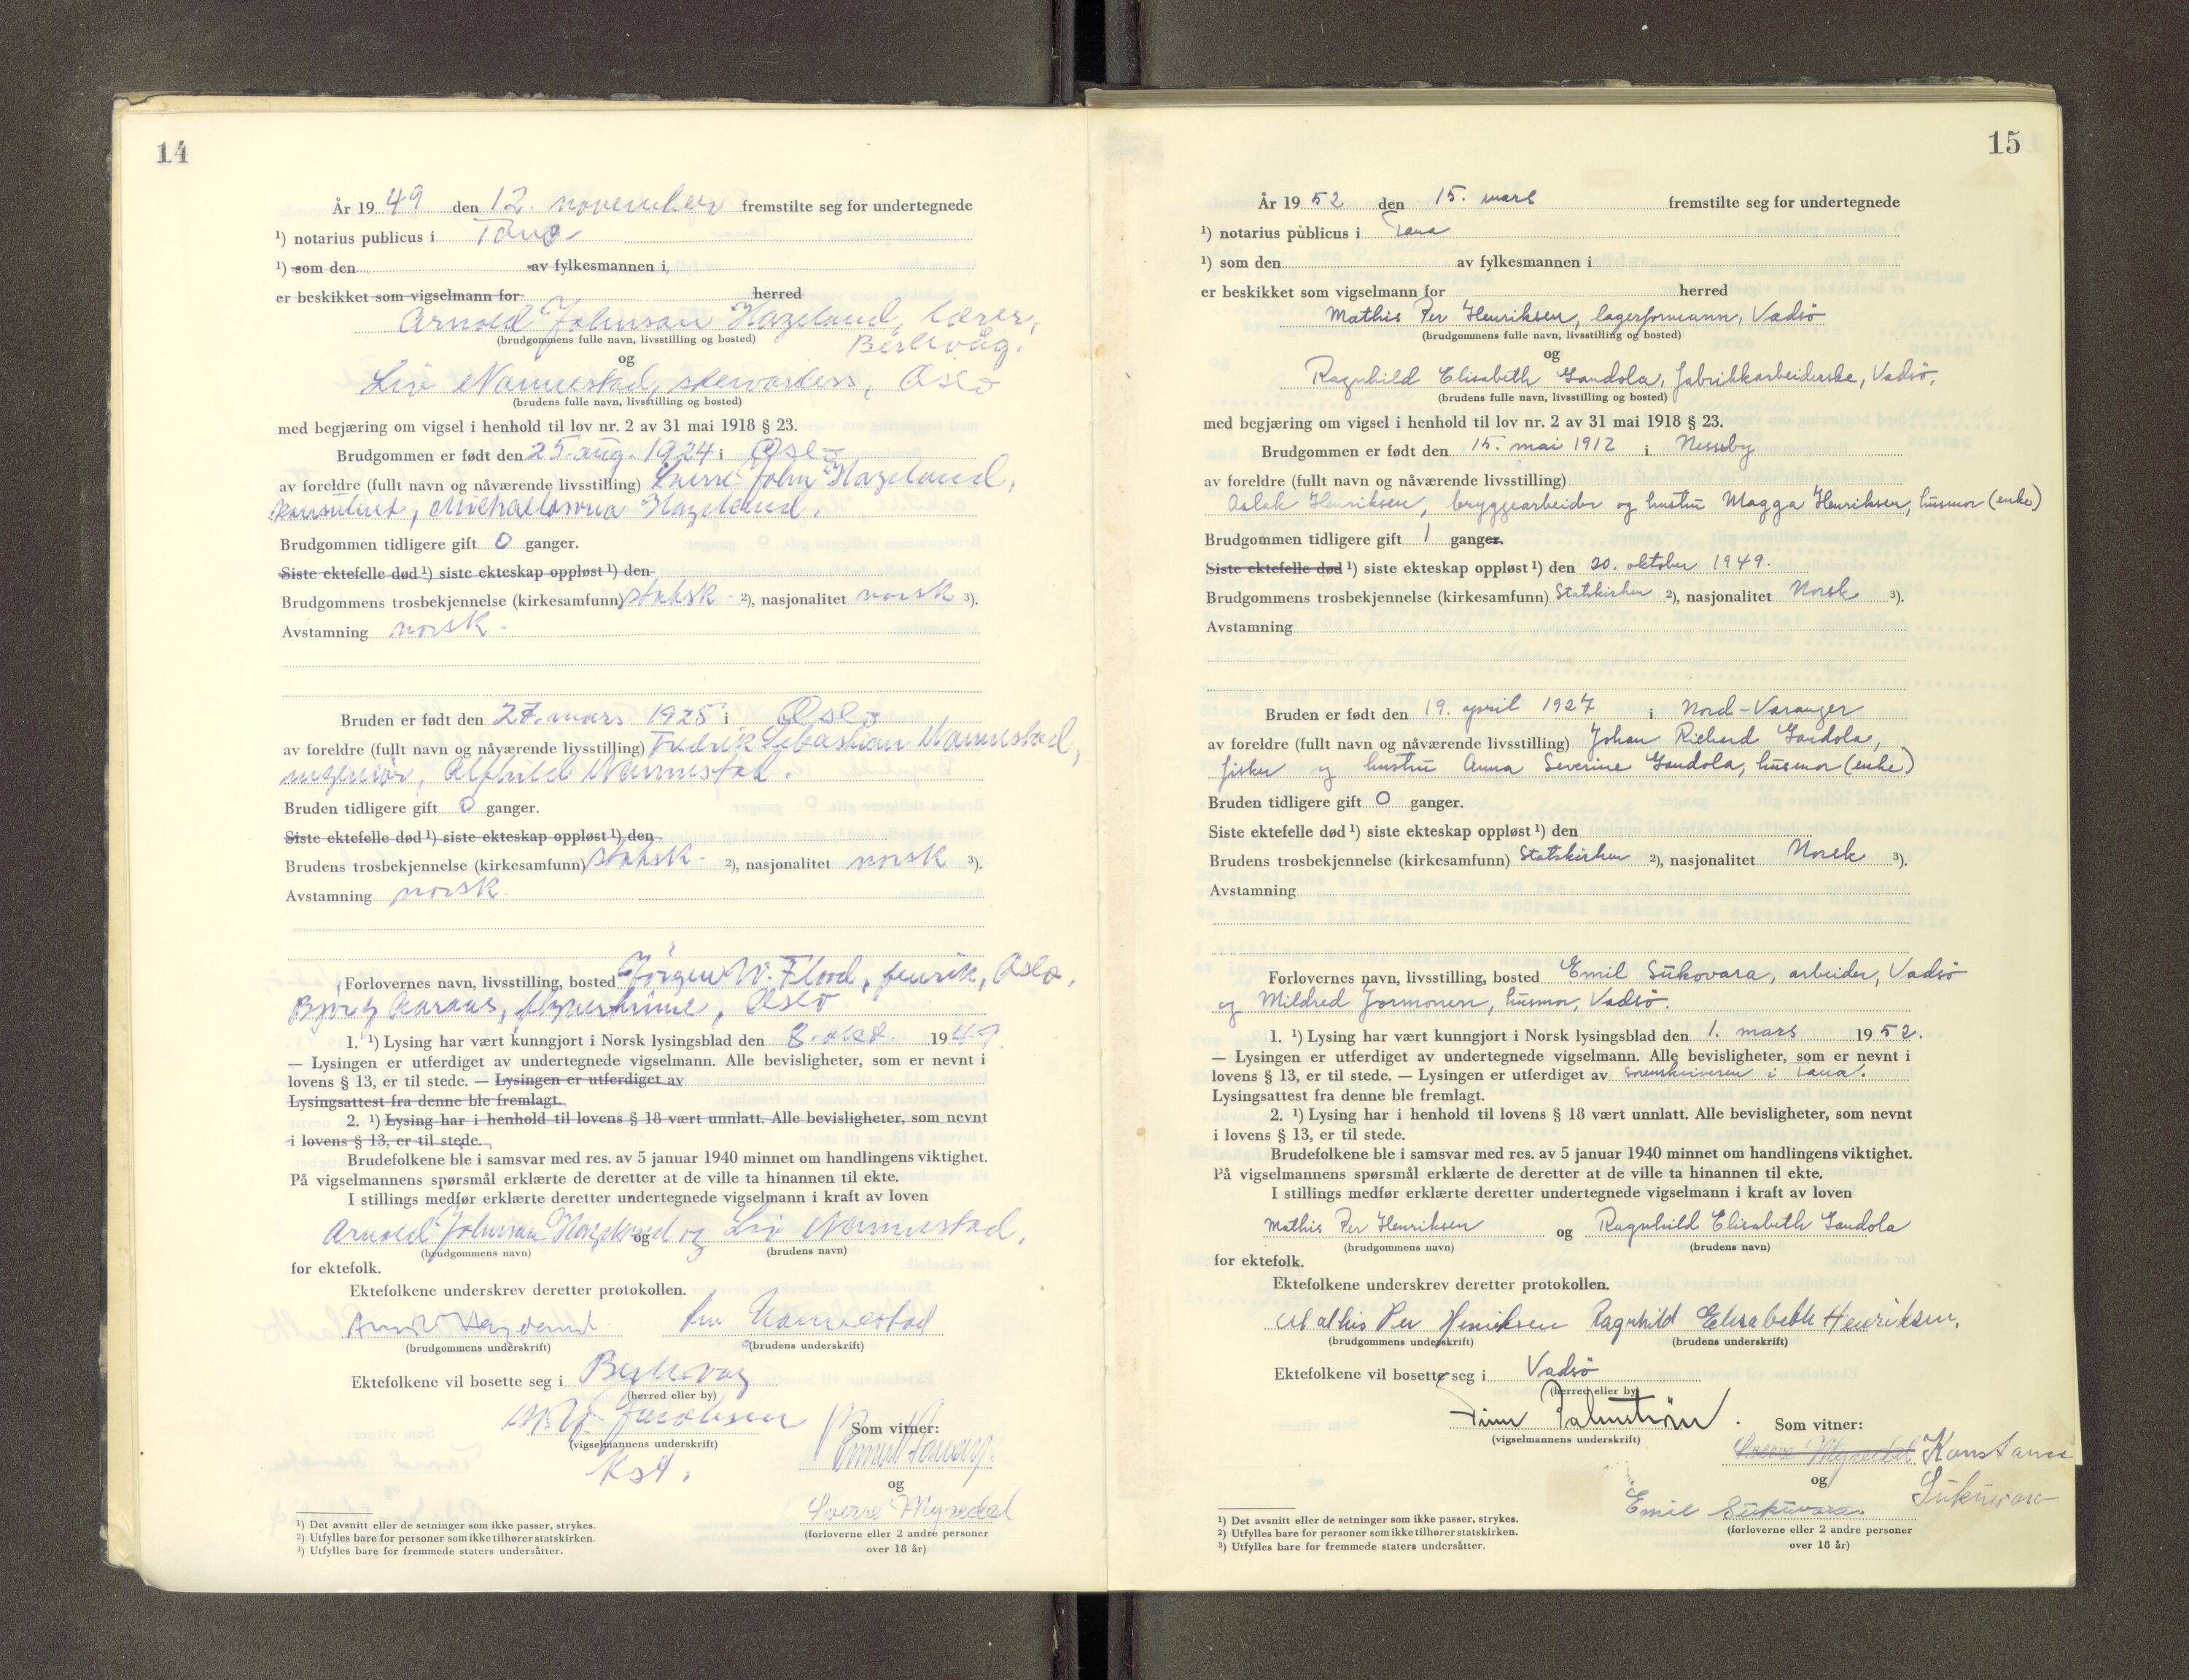 14
År 1949 den 12. november fremstilte seg for undertegnede
¹) notarius publicus i Tana
¹) som den av fylkesmannen i
er beskikket som vigselmann for herred
Arnold Johnson Hageland, lærer,
Berlevåg.
(brudgommens fulle navn, livsstilling og bosted)
og
Liv Nannestad, stewardess, Oslo
(brudens fulle navn, livsstilling og bosted)
med begjæring om vigsel i henhold til lov nr. 2 av 31 mai 1918 § 23.
Brudgommen er født den 25. aug. 1924 i Oslo
av foreldre (fullt navn og nåværende livsstilling) John Hageland,
konsulent, Hageland.
Brudgommen tidligere gift 0 ganger.
Siste ektefelle død ¹) siste ekteskap oppløst ¹) den
Brudgommens trosbekjennelse (kirkesamfunn) statsk. ²), nasjonalitet norsk ³).
Avstamning norsk.
Bruden er født den 27. mars 1925 i Oslo
av foreldre (fullt navn og nåværende livsstilling) Fredrik Sebastian Nannestad,
ingeniør, Alfhild Nannestad.
Bruden tidligere gift 0 ganger.
Siste ektefelle død ¹) siste ekteskap oppløst ¹) den
Brudens trosbekjennelse (kirkesamfunn) statsk. ²), nasjonalitet norsk ³).
Avstamning norsk.
Forlovernes navn, livsstilling, bosted Jörgen W. Flood, fenrik, Oslo,
Bjørg Oslo
1. ¹) Lysing har vært kunngjort i Norsk lysingsblad den 8. okt. 1949.
— Lysingen er utferdiget av undertegnede vigselmann. Alle bevisligheter, som er nevnt i
lovens § 13, er til stede. — Lysingen er utferdiget av
Lysingsattest fra denne ble fremlagt.
2. ¹) Lysing har i henhold til lovens § 18 vært unnlatt. Alle bevisligheter, som nevnt
i lovens § 13, er til stede.
Brudefolkene ble i samsvar med res. av 5 januar 1940 minnet om handlingens viktighet.
På vigselmannens spørsmål erklærte de deretter at de ville ta hinannen til ekte.
I stillings medfør erklærte deretter undertegnede vigselmann i kraft av loven
Arnold Johnson Hageland og og Liv Nannestad,
(brudgommens navn) (brudens navn)
for ektefolk.
Ektefolkene underskrev deretter protokollen.
Arnold Hageland Liv Nannestad
(brudgommens underskrift) (brudens underskrift)
Ektefolkene vil bosette seg i Berlevåg
(herred eller by)
Jacobsen
(vigselmannens underskrift)
Kst.
Som vitner:
og
Sverre Myredal
(forloverne eller 2 andre personer
over 18 år)
¹) Det avsnitt eller de setninger som ikke passer, strykes.
²) Utfylles bare for personer som ikke tilhører statskirken.
³) Utfylles bare for fremmede staters undersåtter.
15
År 1952 den 15. mars fremstilte seg for undertegnede
¹) notarius publicus i Tana
¹) som den av fylkesmannen i
er beskikket som vigselmann for herred
Mathis Per Henriksen, lagerformann, Vadsö
(brudgommens fulle navn, livsstilling og bosted)
og
Ragnhild Elisabeth Gandola, fabrikkarbeiderske, Vadsö,
(brudens fulle navn, livsstilling og bosted)
med begjæring om vigsel i henhold til lov nr. 2 av 31 mai 1918 § 23.
Brudgommen er født den 15. mai 1912 i Nesseby
av foreldre (fullt navn og nåværende livsstilling)
Aslak Henriksen, bryggearbeider og hustru Magga Henriksen, husmor (enke)
Brudgommen tidligere gift 1 ganger.
Siste ektefelle død ¹) siste ekteskap oppløst ¹) den 20. oktober 1949.
Brudgommens trosbekjennelse (kirkesamfunn) Statskirken ²), nasjonalitet Norsk ³).
Avstamning
Bruden er født den 19. april 1927 i Nord-Varanger
av foreldre (fullt navn og nåværende livsstilling) Johan Richard Gandola,
fisker og hustru Anna Severine Gandola, husmor (enke)
Bruden tidligere gift 0 ganger.
Siste ektefelle død ¹) siste ekteskap oppløst ¹) den
Brudens trosbekjennelse (kirkesamfunn) Statskirken ²), nasjonalitet Norsk ³).
Avstamning
Forlovernes navn, livsstilling, bosted Emil Sukovara, arbeider, Vadsö
og Mildred Jormonen, husmor, Vadsö.
1. ¹) Lysing har vært kunngjort i Norsk lysingsblad den 1. mars 1952.
— Lysingen er utferdiget av undertegnede vigselmann. Alle bevisligheter, som er nevnt i
lovens § 13, er til stede. — Lysingen er utferdiget av sorenskriveren i Tana.
Lysingsattest fra denne ble fremlagt.
2. ¹) Lysing har i henhold til lovens § 18 vært unnlatt. Alle bevisligheter, som nevnt
i lovens § 13, er til stede.
Brudefolkene ble i samsvar med res. av 5 januar 1940 minnet om handlingens viktighet.
På vigselmannens spørsmål erklærte de deretter at de ville ta hinannen til ekte.
I stillings medfør erklærte deretter undertegnede vigselmann i kraft av loven
Mathis Per Henriksen og Ragnhild Elisabeth Gandola
(brudgommens navn) (brudens navn)
for ektefolk.
Ektefolkene underskrev deretter protokollen.
Mathis Per Henriksen Ragnhild Elisabeth Henriksen,
(brudgommens underskrift) (brudens underskrift)
Ektefolkene vil bosette seg i Vadsö
(herred eller by)
Finn Palmström.
(vigselmannens underskrift)
Som vitner:
Sverre Myredal Konstanse
og Sukuvara
Emil Sukuvara
(forloverne eller 2 andre personer
over 18 år)
¹) Det avsnitt eller de setninger som ikke passer, strykes.
²) Utfylles bare for personer som ikke tilhører statskirken.
³) Utfylles bare for fremmede staters undersåtter.